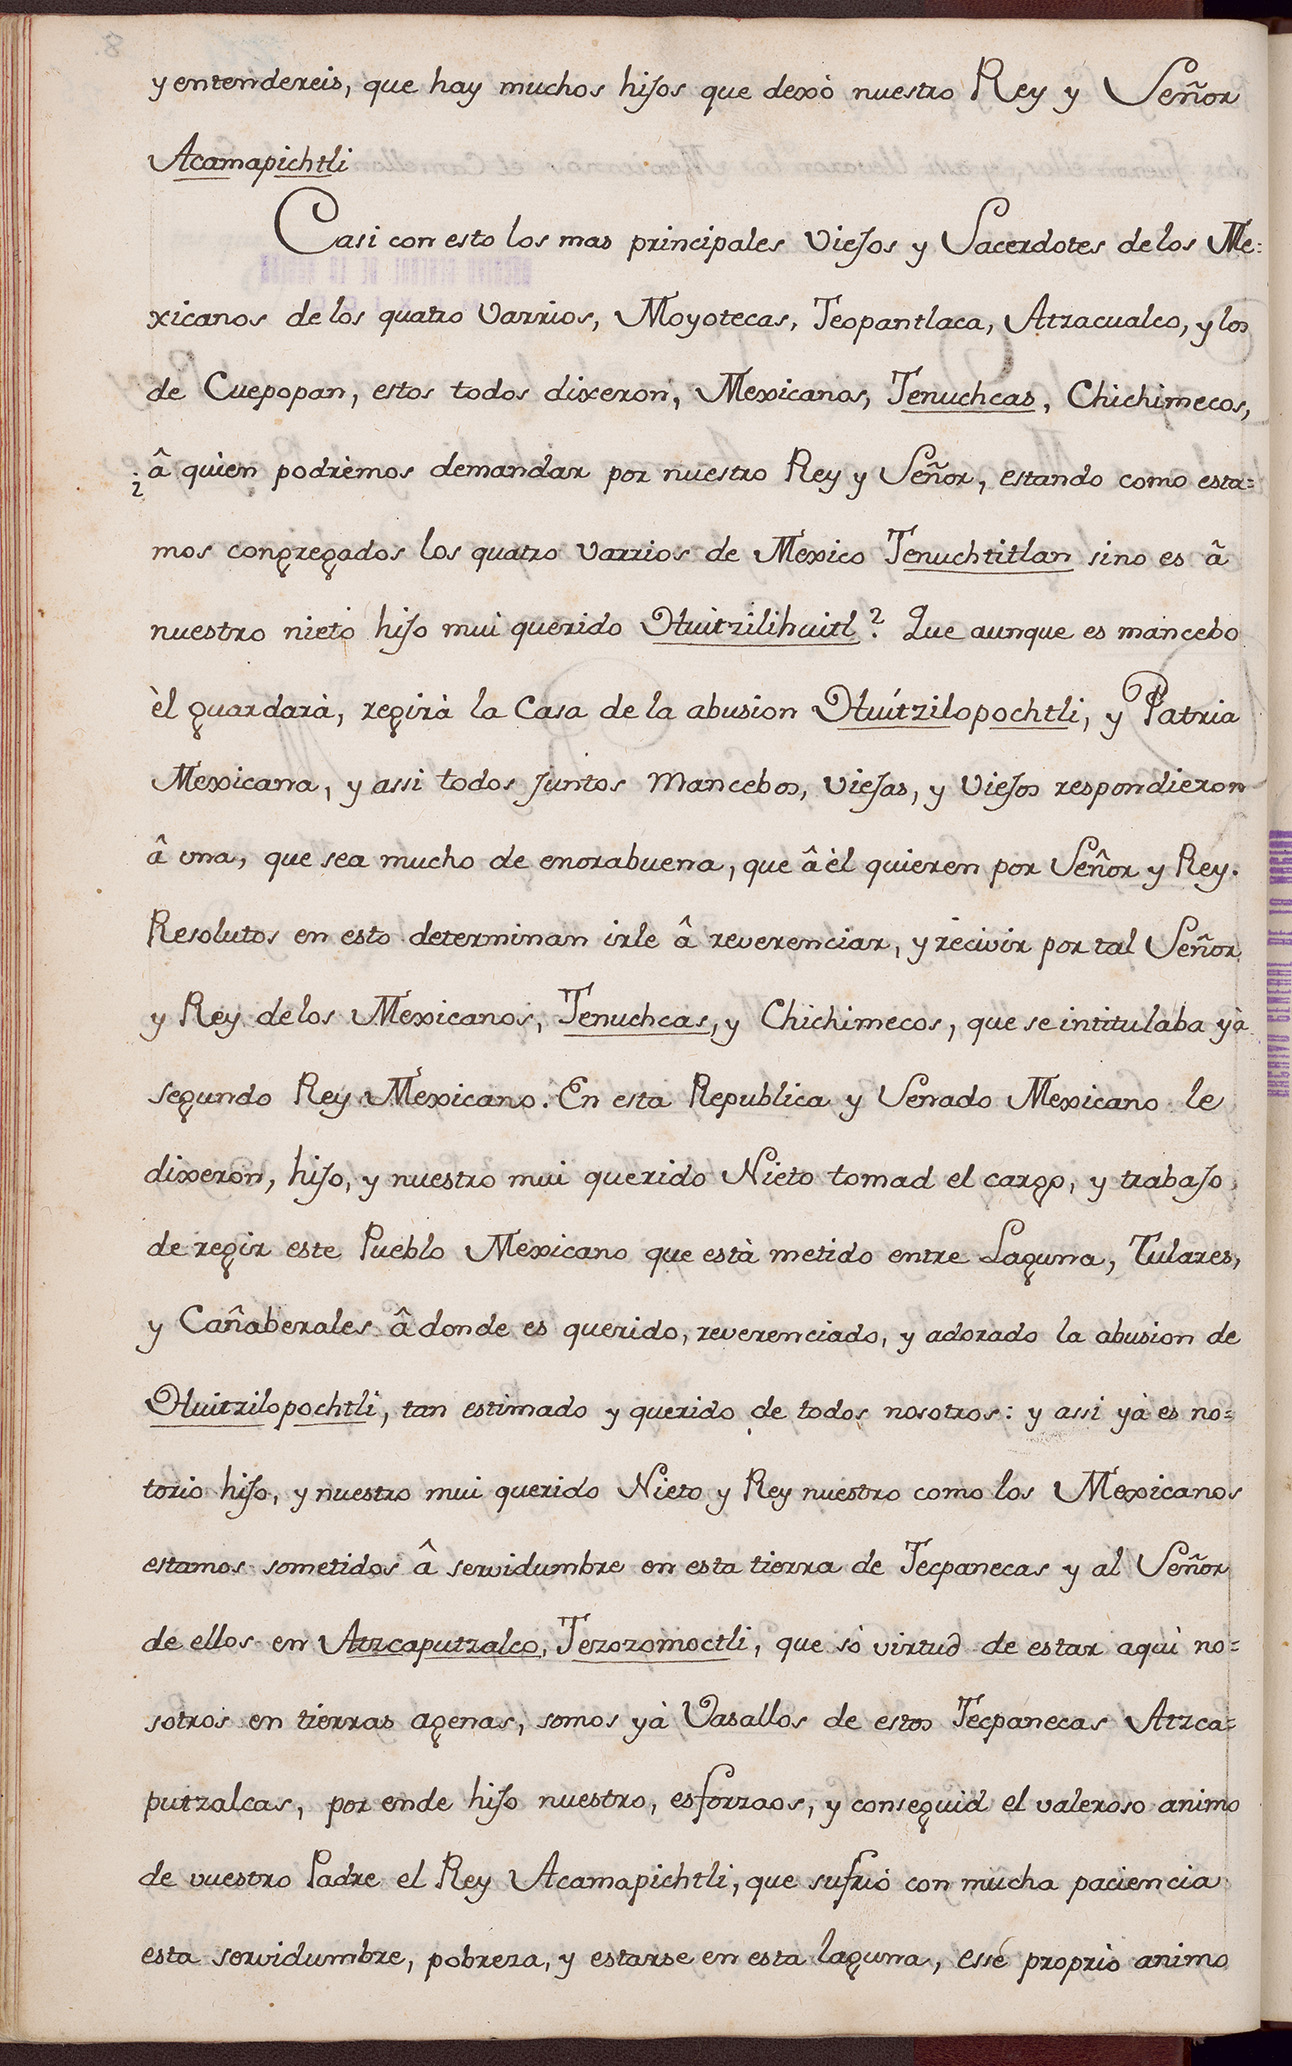 y entendereis, que hay muchos hijos que dexò nuestro Rey y Señor
Acamapichtli
Casi con esto los mas principales Viejos y Sacerdotes de los Me=
xicanos de los quatro Varrios, Moyotecas, Teopantlaca, Atzacualco, y los
de Cuepopan, estos todos dixeron, Mexicanos, Tenuchcas, Chichimecos,
¿ â quien podrèmos demandar por nuestro Rey y Señor, estando como esta=
mos congregados los quatro varrios de Mexico Tenuchtitlan sino es â
nuestro nieto hijo mui querido Huitzilihuitl? Que aunque es mancebo
èl guardarà, regirà la Casa de la abusion Huítzilopochtli, y Patria
Mexicana, y assi todos juntos Mancebos, Viejas, y Viejos respondieron
â una, que sea mucho de enorabuena, que â èl quieren por Señor y Rey.
Resolutos en esto determinan irle â reverenciar, y recivir por tal Señor
y Rey de los Mexicanos, Tenuchcas, y Chichimecos, que se intitulaba yà
segundo Rey Mexicano. En esta Republica y Senado Mexicano le
dixeron, hijo, y nuestro mui querido Nieto tomad el cargo, y trabajo
de regir este Pueblo Mexicano que està metido entre Laguna, Tulares,
y Cañaberales â donde es querido, reverenciado, y adorado la abusion de
Huitzilopochtli, tan estimado y querido de todos nosotros: y assi yà es no=
torio hijo, y nuestro mui querido Nieto y Rey nuestro como los Mexicanos
estamos sometidos â servidumbre en esta tierra de Tecpanecas y al Señor
de ellos en Atzcaputzalco, Tezozomoctli, que sò virtud de estar aqui no=
sotros en tierras agenas, somos yà Vasallos de estos Tecpanecas Atzca=
putzalcas, por ende hijo nuestro, esforzaos, y conseguid el valeroso animo
de vuestro Padre el Rey Acamapichtli, que sufriò con mucha paciencia
esta servidumbre, pobreza, y estarse en esta laguna, esse proprio animo
ARCHIVO GENERAL DE LA NACION